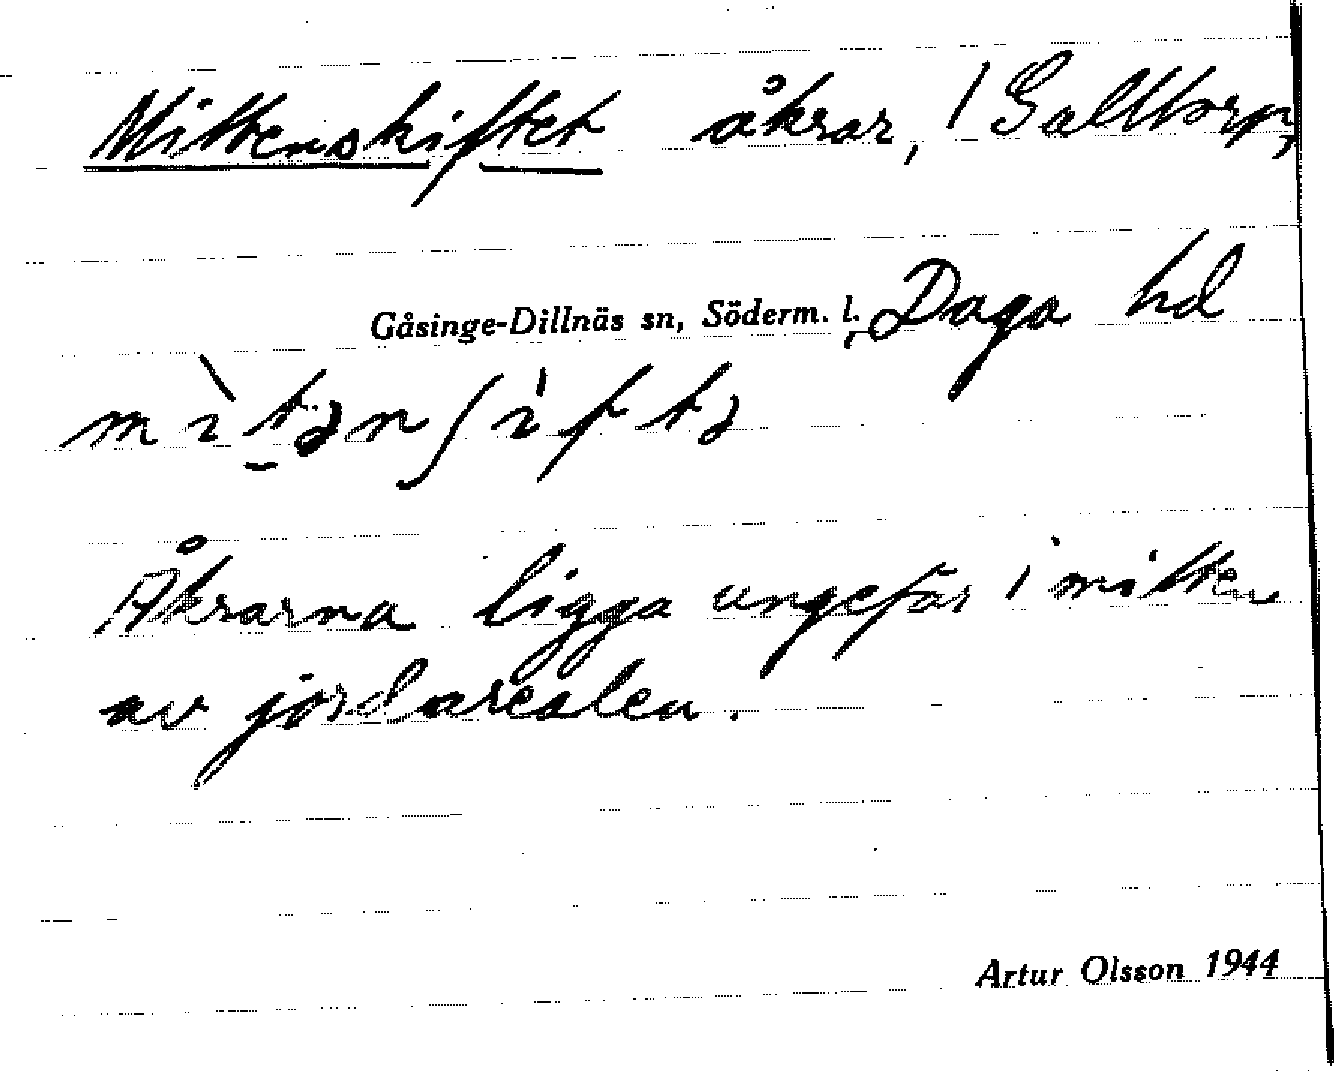 Mittenskiftet åkrar, / Salltorp,
Gåsinge-Dillnäs sn, Söderm. l., Daga hd
Åkrarna ligga ungefär i mitten
av jordarealen.
Artur Olsson 1944